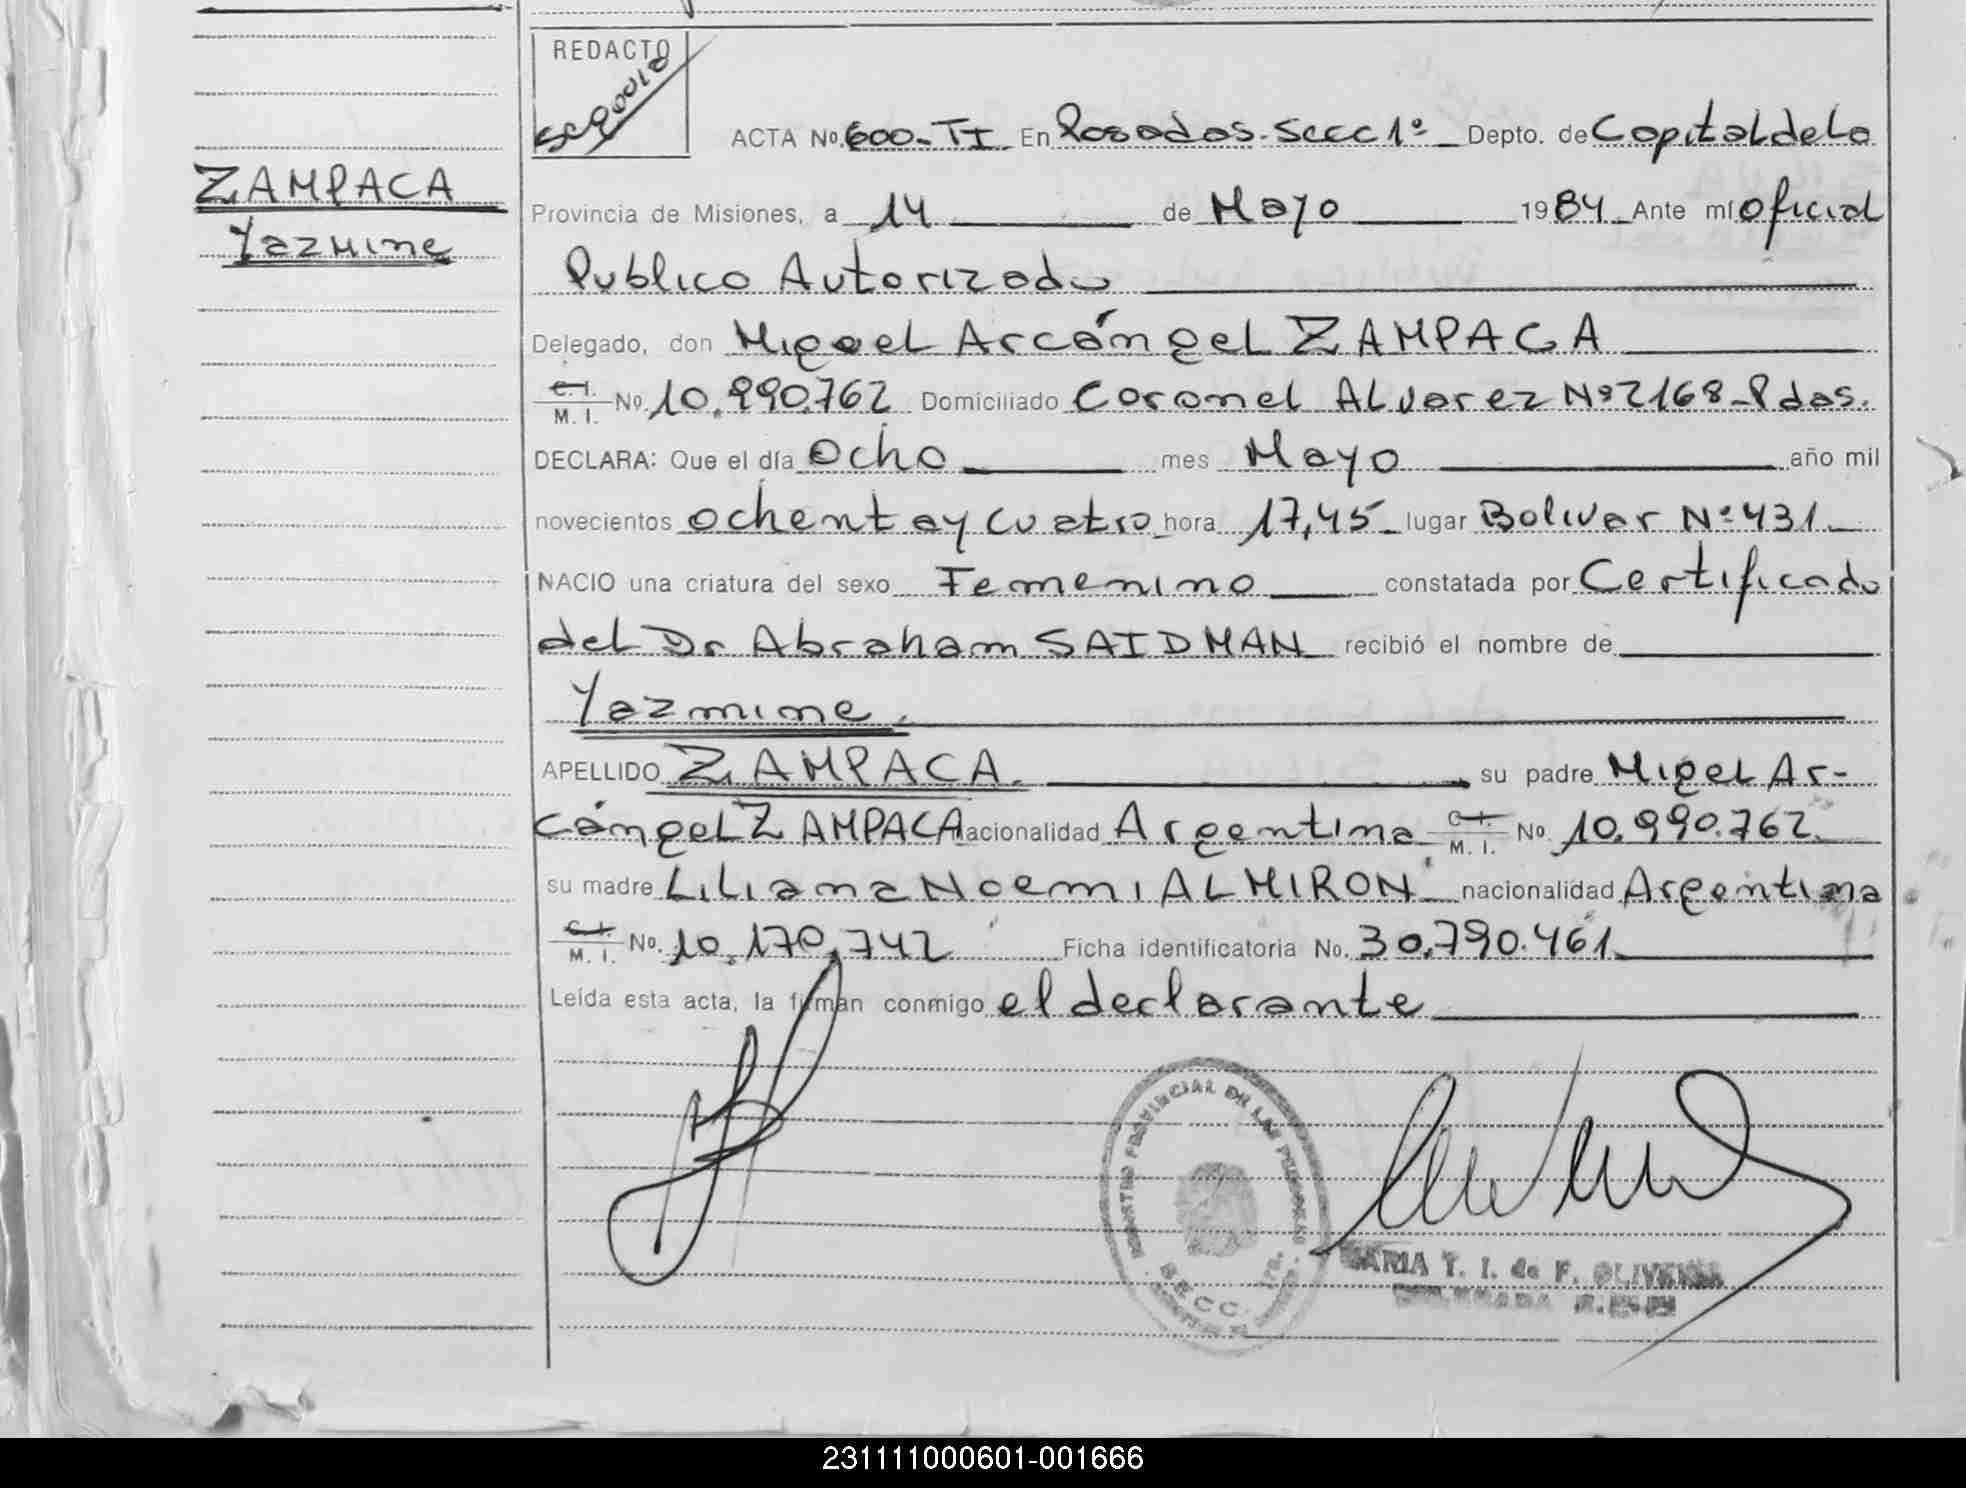 REDACTO
Segovia
ACTA No. 600-TI En Posadas-Secc 1º Depto. de Capital de La
ZAMPACA
Provincia de Misiones, a 14 de Mayo 1984 Ante mí oficial
Yazmine
Publico Autorizado
Delegado, don Miguel Arcángel ZAMPACA
C. I. M. I. No. 10.990.762 Domiciliado Coronel Alvarez Nº 2168-Pdas.
DECLARA: Que el día ocho mes Mayo año mil
novecientos ochenta y cuatro hora 17,45 lugar Bolivar Nº 431
NACIO una criatura del sexo Femenino constatada por Certificado
del Dr Abraham SAIDMAN recibió el nombre de
Yazmine.
APELLIDO ZAMPACA. su padre Migel Ar-
cángel ZAMPACA nacionalidad Argentina C. I. M. I. No. 10.990.762.
su madre Liliana Noemi ALMIRON nacionalidad Argentina
C. I. M. I. No. 10.170.742 Ficha identificatoria No. 30.790.461
Leída esta acta, la firman conmigo el declarante
REGISTRO PROVINCIAL DE LAS PERSONAS
SECC. 1ra.
MARIA T. I. de F. OLIVEIRA
DELEGADA
231111000601-001666